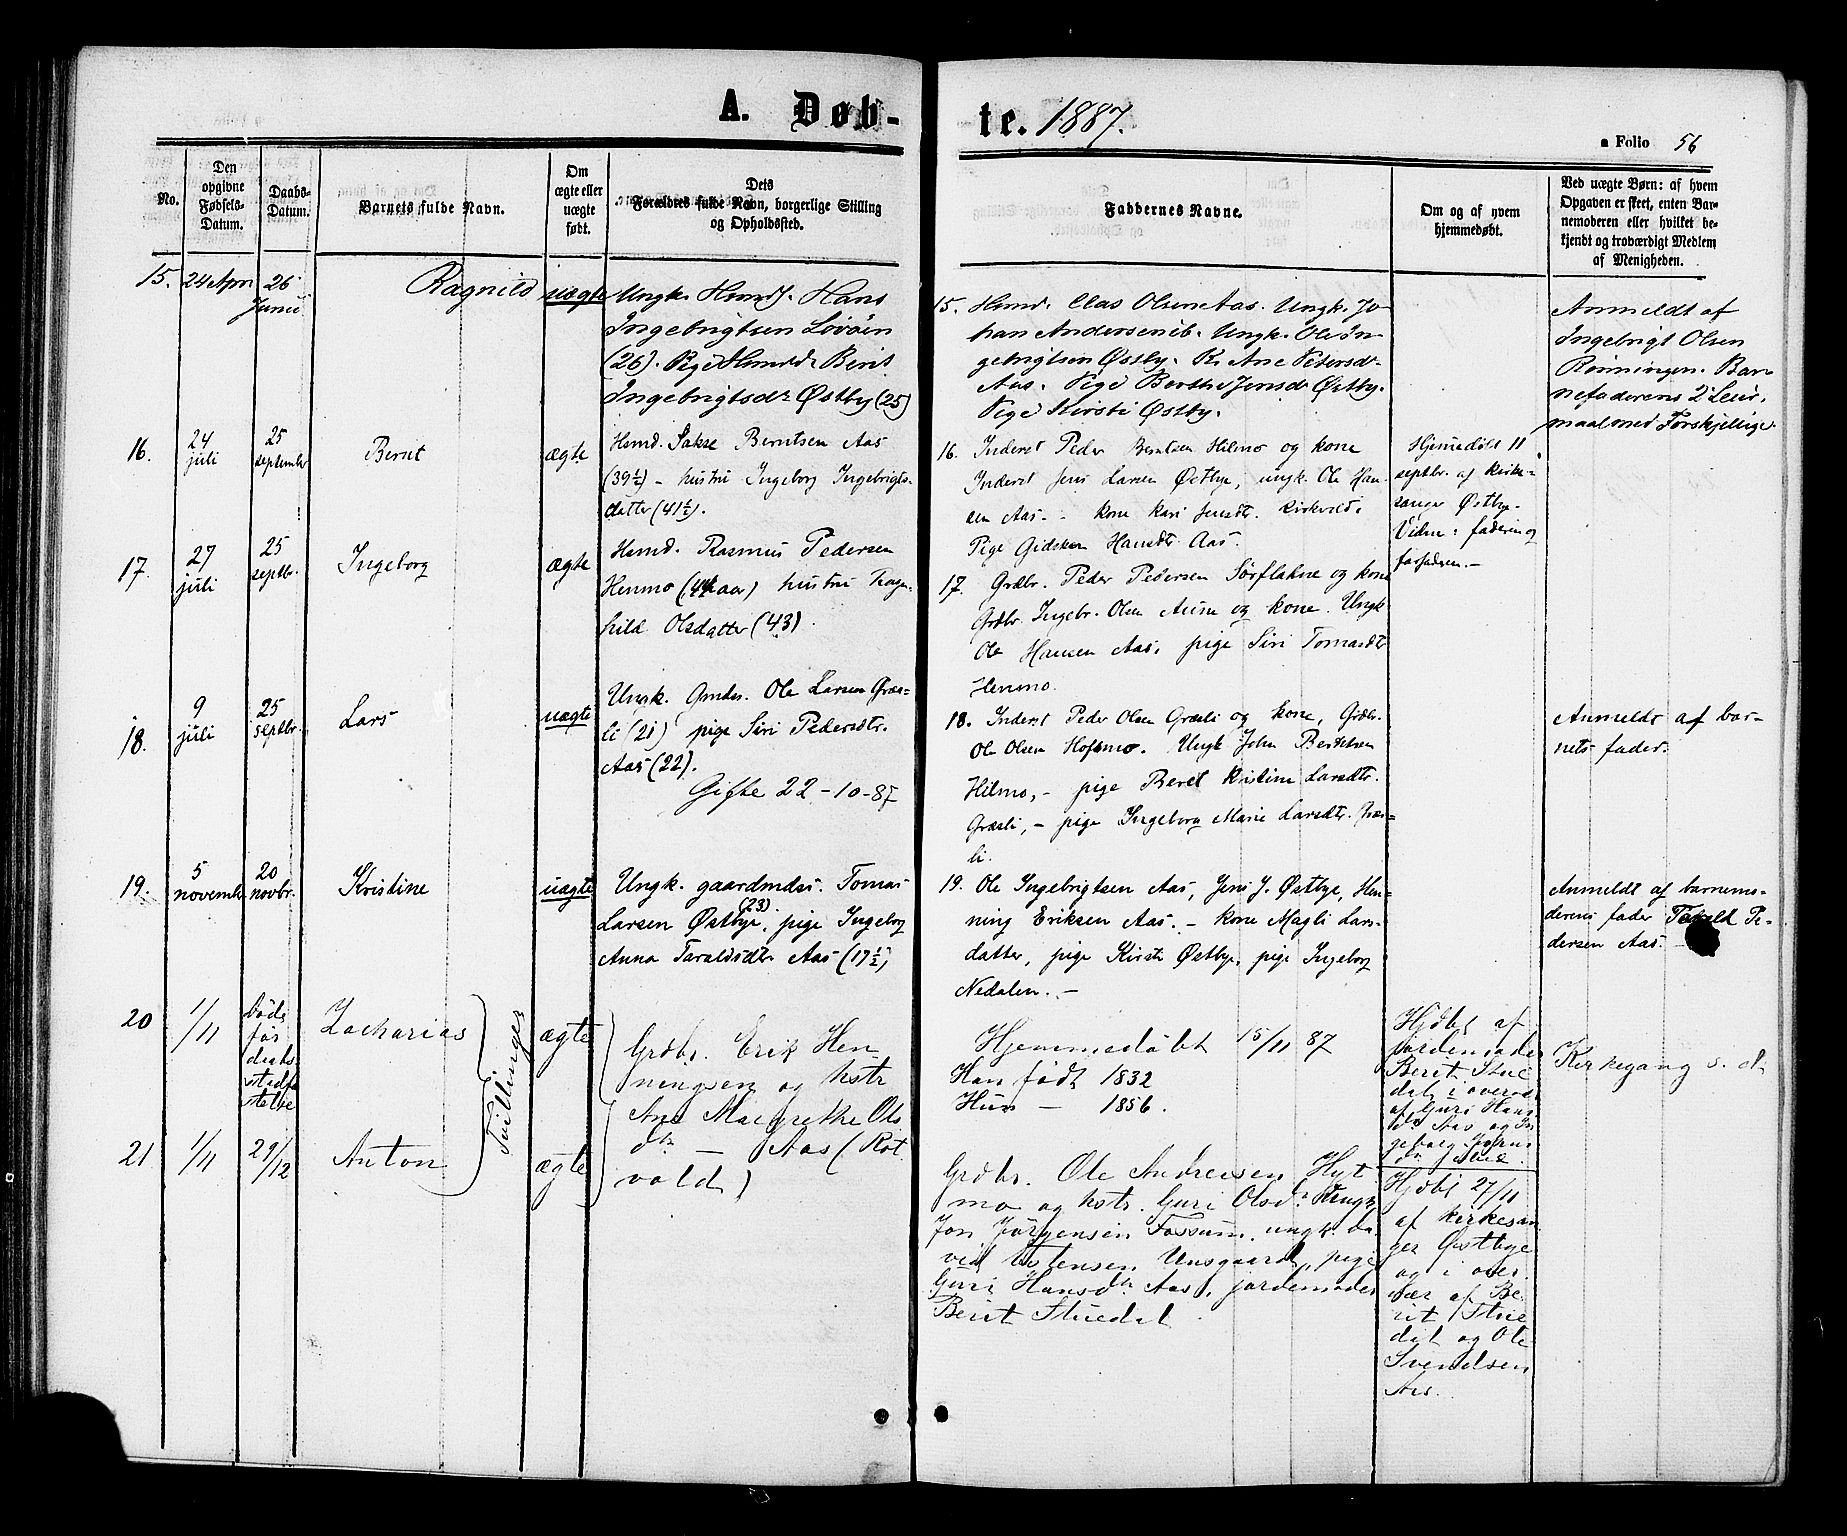 A. Døb-
te. 1887.
a Folio 56
No.
Den opgivne Fødsels-Datum.
Daabs-Datum.
Barnets fulde Navn.
Om ægte eller uægte født.
Dets Forældres fulde Navn, borgerlige Stilling og Opholdssted.
Faddernes Navne.
Om og af hvem hjemmedøbt.
Ved uægte Børn: af hvem
Opgaven er skeet, enten Bar-
nemoderen eller hvilket be-
kjendt og troværdigt Medlem
af Menigheden.
15. 24 Apri 26 Junii Ragnild uægte
Ungk. Hsmd. Hans
Ingebrigtsen Løvøien
(26). Pige Hsmdd. Berit
Ingebrigtsdr Østby (25)
15. Hsmd. Clas Olsen Aas. Ungk. Jo-
han Andersen ib. Ungk. Ole In-
gebrigtsen Østby. K. Ane Petersdr
Aas. Pige Berthe Jensdr Østby.
Pige Kirsti Østby.
Anmeldt af
Ingebrigt Olsen
Rønningen. Bar-
nefaderens 2 Leier-
maal med Forskjellige.
16. 24 juli 25 september Berit ægte
Hsmd. Sakse Berntsen Aas
(39½) - hustru Ingeborg Ingebrigts-
datter (41½).
16. Inderst Peder Berntsen Hilmo og kone
Inderst Jens Larsen Østbye, ungk. Ole Han-
sen Aas. - kone Kari Jensdr. Kirkvold.
Pige Gidsken Hansdr. Aas.
Hjemmedøbt 11
septbr. af Kirke-
sanger Østbye.
Vidne: faderen og
farfaderen. -
17. 27 juli 25 septbr. Ingeborg ægte
Hsmd. Rasmus Pedersen
Henmo (44 aar) hustru Ragn-
hild Olsdatter (43).
17. Grdbr. Peder Pedersen Sørflakne og kone
Grdbr. Ingebr. Olsen Aune og kone. Ungk
Ole Hansen Aas, pige Siri Tomasdtr
Henmo.
18. 9 juli 25 septbr. Lars uægte
Ungk. Gmds. Ole Larsen Græs-
li (21) pige Siri Pedersdtr.
Aas (22).
Gifte 22-10-87
18. Inderst Peder Olsen Græsli og kone, Grdbr.
Ole Olsen Hofsmo. Ungk John Bentsen
Hilmo, - pige Beret Kristine Larsdtr.
Græsli, - pige Ingeborg Marie Larsdtr. Græs-
li.
Anmeldt af bar-
nets fader.
19. 5 novembr 20 novbr. Kristine uægte
Ungk. gaardmds. Tomas
Larsen Østbye (23), pige Ingeborg
Anna Taraldsdtr Aas (17½)
19. Ole Ingebrigtsen Aas, Jens J. Østbye, Hen-
ning Eriksen Aas. - kone Magli Lars-
datter, pige Kirsti Østbye, pige Ingeborg
Nedalen. -
Anmeldt af barnemo-
derens fader Tarald Pe-
dersen Aas. -
20 1/11 Døde før daabs stadfæstelse Zacharias ægte
Tvillinger
Grdbr. Erik Hen-
ningsen og hstr
Ane Margrethe Ols
dtr - Aas (Rot
vold)
Hjemmedøbt 15/11 87
Han født 1832
Hun - 1856.
Hjdbt af
jordemoder
Berit Stue
dal i overvær
af Guri Hans
dtr Aas og In
geborg
Kirkegang s. d.
21 1/11 29/12 Anton ægte
Grdbr. Ole Andreesen Hyt
mo og hstr. Guri Olsdr. Ungk
Jon Jörgensen Fossum, ungk. Da-
vid Estensen Unsgaard, pige
Guri Hansdtr Aas, jordemoder
Berit Stuedal
Hjdbt 27/11
af kirkesan
ger Østbye
og i over
vær af Be
rit Stue
dal og Ole
Svendsen
Aas.